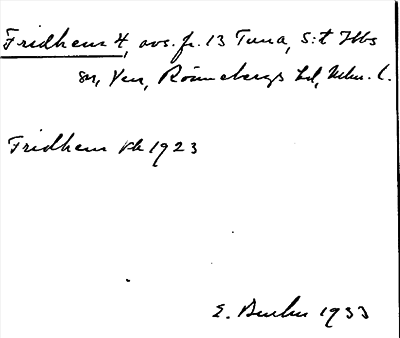 Fridhem 4, avs. fr. 13 Tuna, S:t Ibbs
sn, Ven, Rönnebergs hd, Mlm. l.
Fridhem Pk 1923
E. 1933